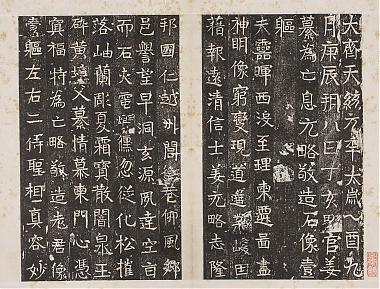 大齊天統元年太歲乙酉九
月庚辰朔八日丁亥官姜
纂為亡息元略敬造石像壹
軀
夫靈暉西沒至理東遷啚盡
神明像窮變現道因
藉報遠清信士姜元略志隆
邦國仁越州閭巷仰風鄉
邑譽望早洞玄源夙達空旨
而石火電儵忽從化松摧
落岫蘭彫夏霜寶散閻泉玉
碎黃壚父纂情慕東門心憑
冥福特為亡略敬造老君像
壹軀左右二侍聖相真容妙